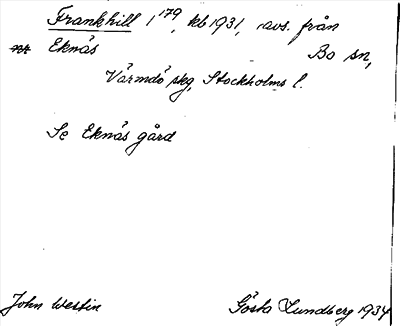 Frankhill 1¹⁷⁹, kb 1931, avs. från
Eknäs Bo sn,
Värmdö skg, Stockholms l.
Se Eknäs gård
John Westin Gösta Lundberg 1934